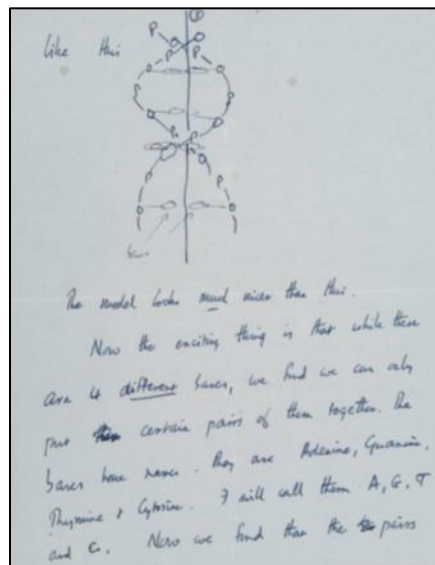 like this
P P
P P
P P
P P
bases
The model looks much nicer than this.
Now the exciting thing is that while these
are 4 different bases, we find we can only
put certain pairs of them together. The
bases have names. They are Adenine, Guanine,
Thymine & Cytosine. I will call them A, G, T
and C. Now we find that the pairs